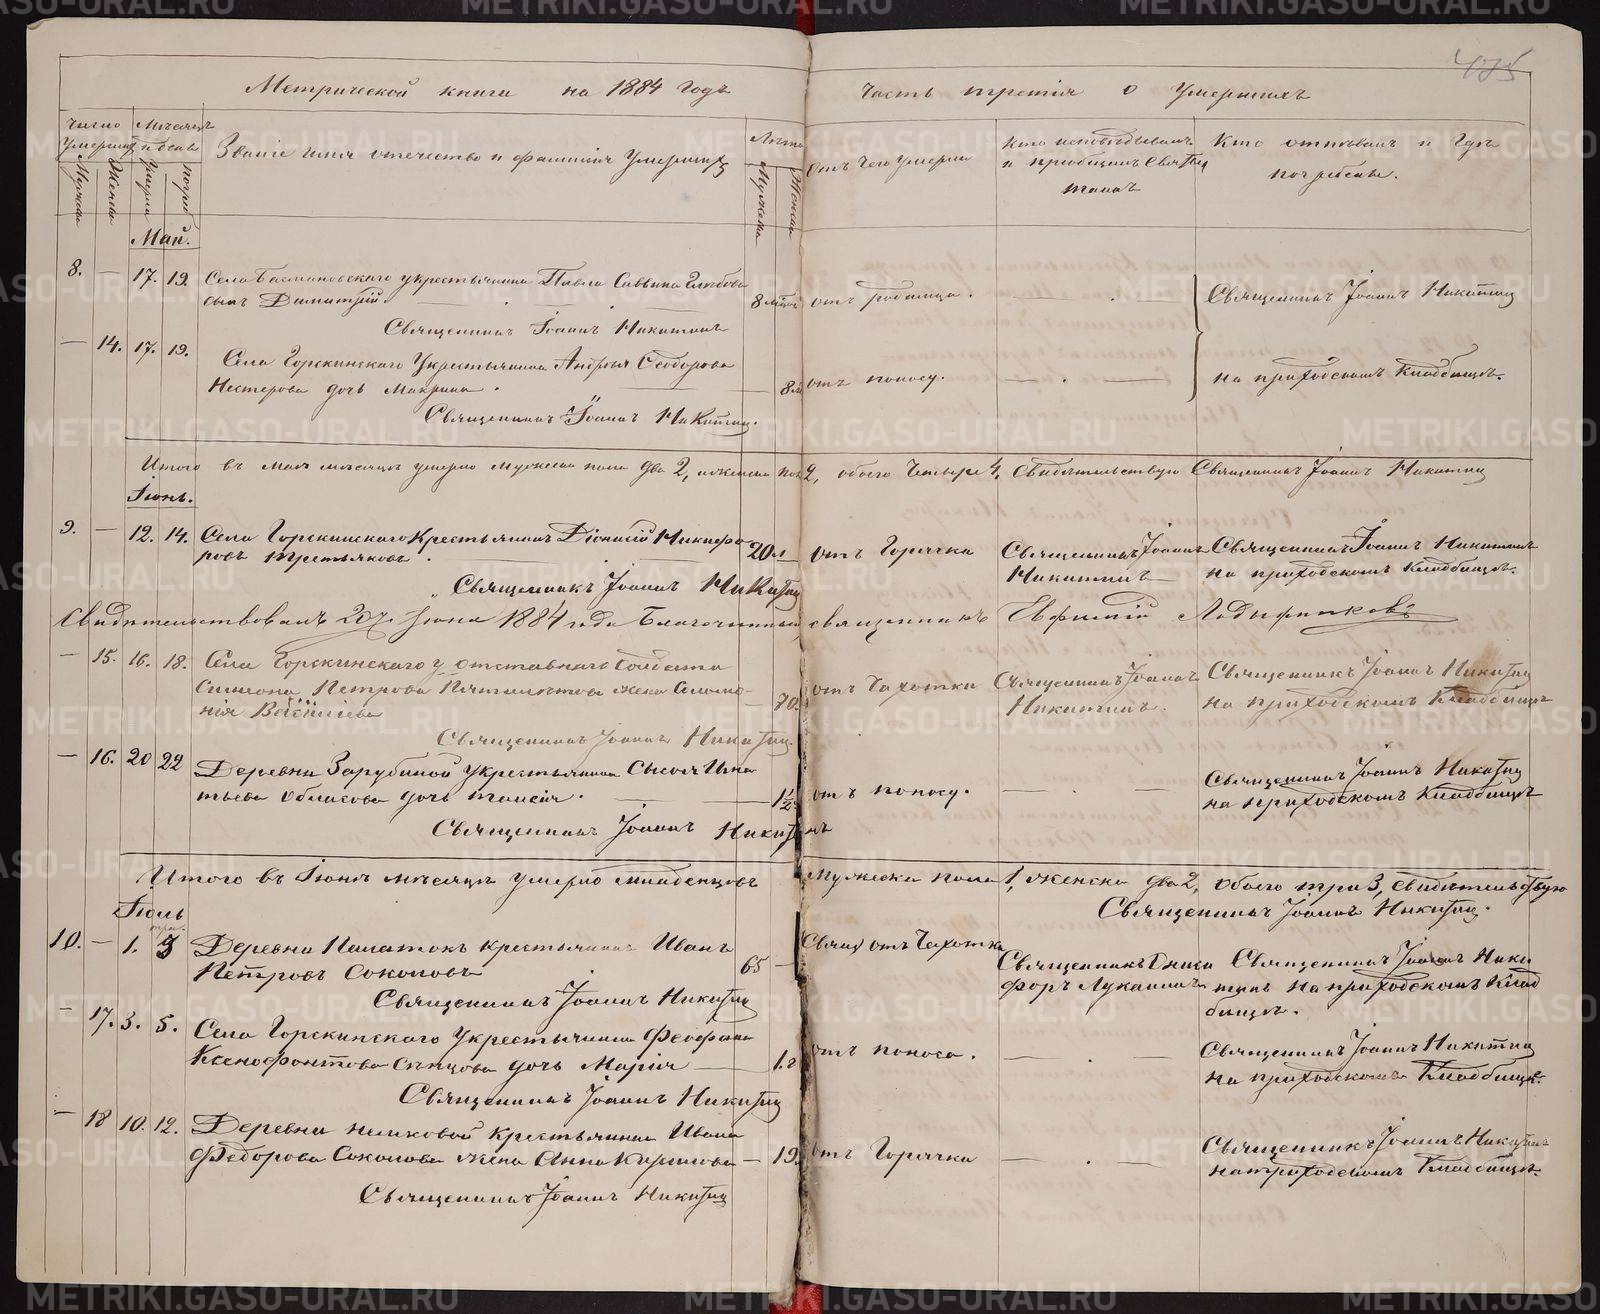 475
Метрической книги на 1884 годъ
Часть третія о умершихъ
Число умершихъ
Мѣсяцъ и день
Званіе имя отечество и фамилія умершихъ
Лѣта
Отъ чего умерли
Кто исповѣдывалъ и пріобщалъ Святыхъ таинъ
Кто отпѣвалъ и гдѣ погребены.
Мужска
Женска
Умерли
Мужска
Женска
Май.
8. — 17. 19. Села Басмановскаго у крестьянина Павла Саввина Глѣбова
сынъ Димитрій.
отъ родимца.
Священникъ Іоаннъ Никитинъ
Священникъ Іоаннъ Никитинъ
— 14. 17. 19. Села Горскинскаго у крестьянина Андрея Ѳеодорова
Нестерова дочь Макрина.
отъ поносу.
на приходскомъ кладбищѣ.
Священникъ Іоаннъ Никитинъ.
Итого въ маѣ мѣсяцѣ умерло мужеска пола два 2, женска 2, обоего четыре 4, Свидѣтельствую Священникъ Іоаннъ Никитинъ
Іюнь.
9. — 12. 14. Села Горскинскаго крестьянинъ Діонисій Никифо
ровъ Третьяковъ.
20 л — отъ горячки
Священникъ Іоаннъ
Никитинъ
Священникъ Іоаннъ Никитинъ
на приходскомъ кладбищѣ.
Священникъ Іоаннъ Никитинъ
Свидѣтельствовалъ 20 Іюня 1884 года Благочинный священникъ Евфимій
— 15. 16. 18. Села Горскинскаго у отставнаго солдата
Симеона Петрова жена Соломо-
нія
70. отъ чахотки
Священникъ Іоаннъ
Никитинъ.
Священникъ Іоаннъ Никитинъ
на приходскомъ кладбищѣ
Священникъ Іоаннъ Никитинъ.
— 16. 20 22 Деревни Зарубиной у крестьянина Сысоя Игна
тьева дочь Таисія.
1½ отъ поносу.
Священникъ Іоаннъ Никитинъ
на приходскомъ кладбищѣ
Священникъ Іоаннъ Никитинъ
Итого въ Іюнѣ мѣсяцѣ умерло младенцовъ мужска пола 1, женска два 2, обоего три 3, свидѣтельствую
Священникъ Іоаннъ Никитинъ.
Іюль
10. — 1. 3 Деревни Палатокъ крестьянинъ Иванъ
Петровъ Соколовъ
65 —
отъ чахотки
Священникъ Ники
форъ Луканинъ
Священникъ Іоаннъ Ники
тинъ на приходскомъ клад
бищѣ.
Священникъ Іоаннъ Никитинъ
— 17. 3. 5. Села Горскинскаго у крестьянина Ѳеофана
Ксенофонтова Слѣпцова дочь Марія
1 г отъ поноса.
Священникъ Іоаннъ Никитинъ
на приходскомъ кладбищѣ.
Священникъ Іоаннъ Никитинъ
— 18 10. 12. Деревни крестьянина Ивана
Федорова Соколова жена Анна Кирилова
— 19. отъ горячки
Священникъ Іоаннъ Никитинъ
на приходскомъ кладбищѣ.
Священникъ Іоаннъ Никитинъ
METRIKI.GASO-URAL.RU